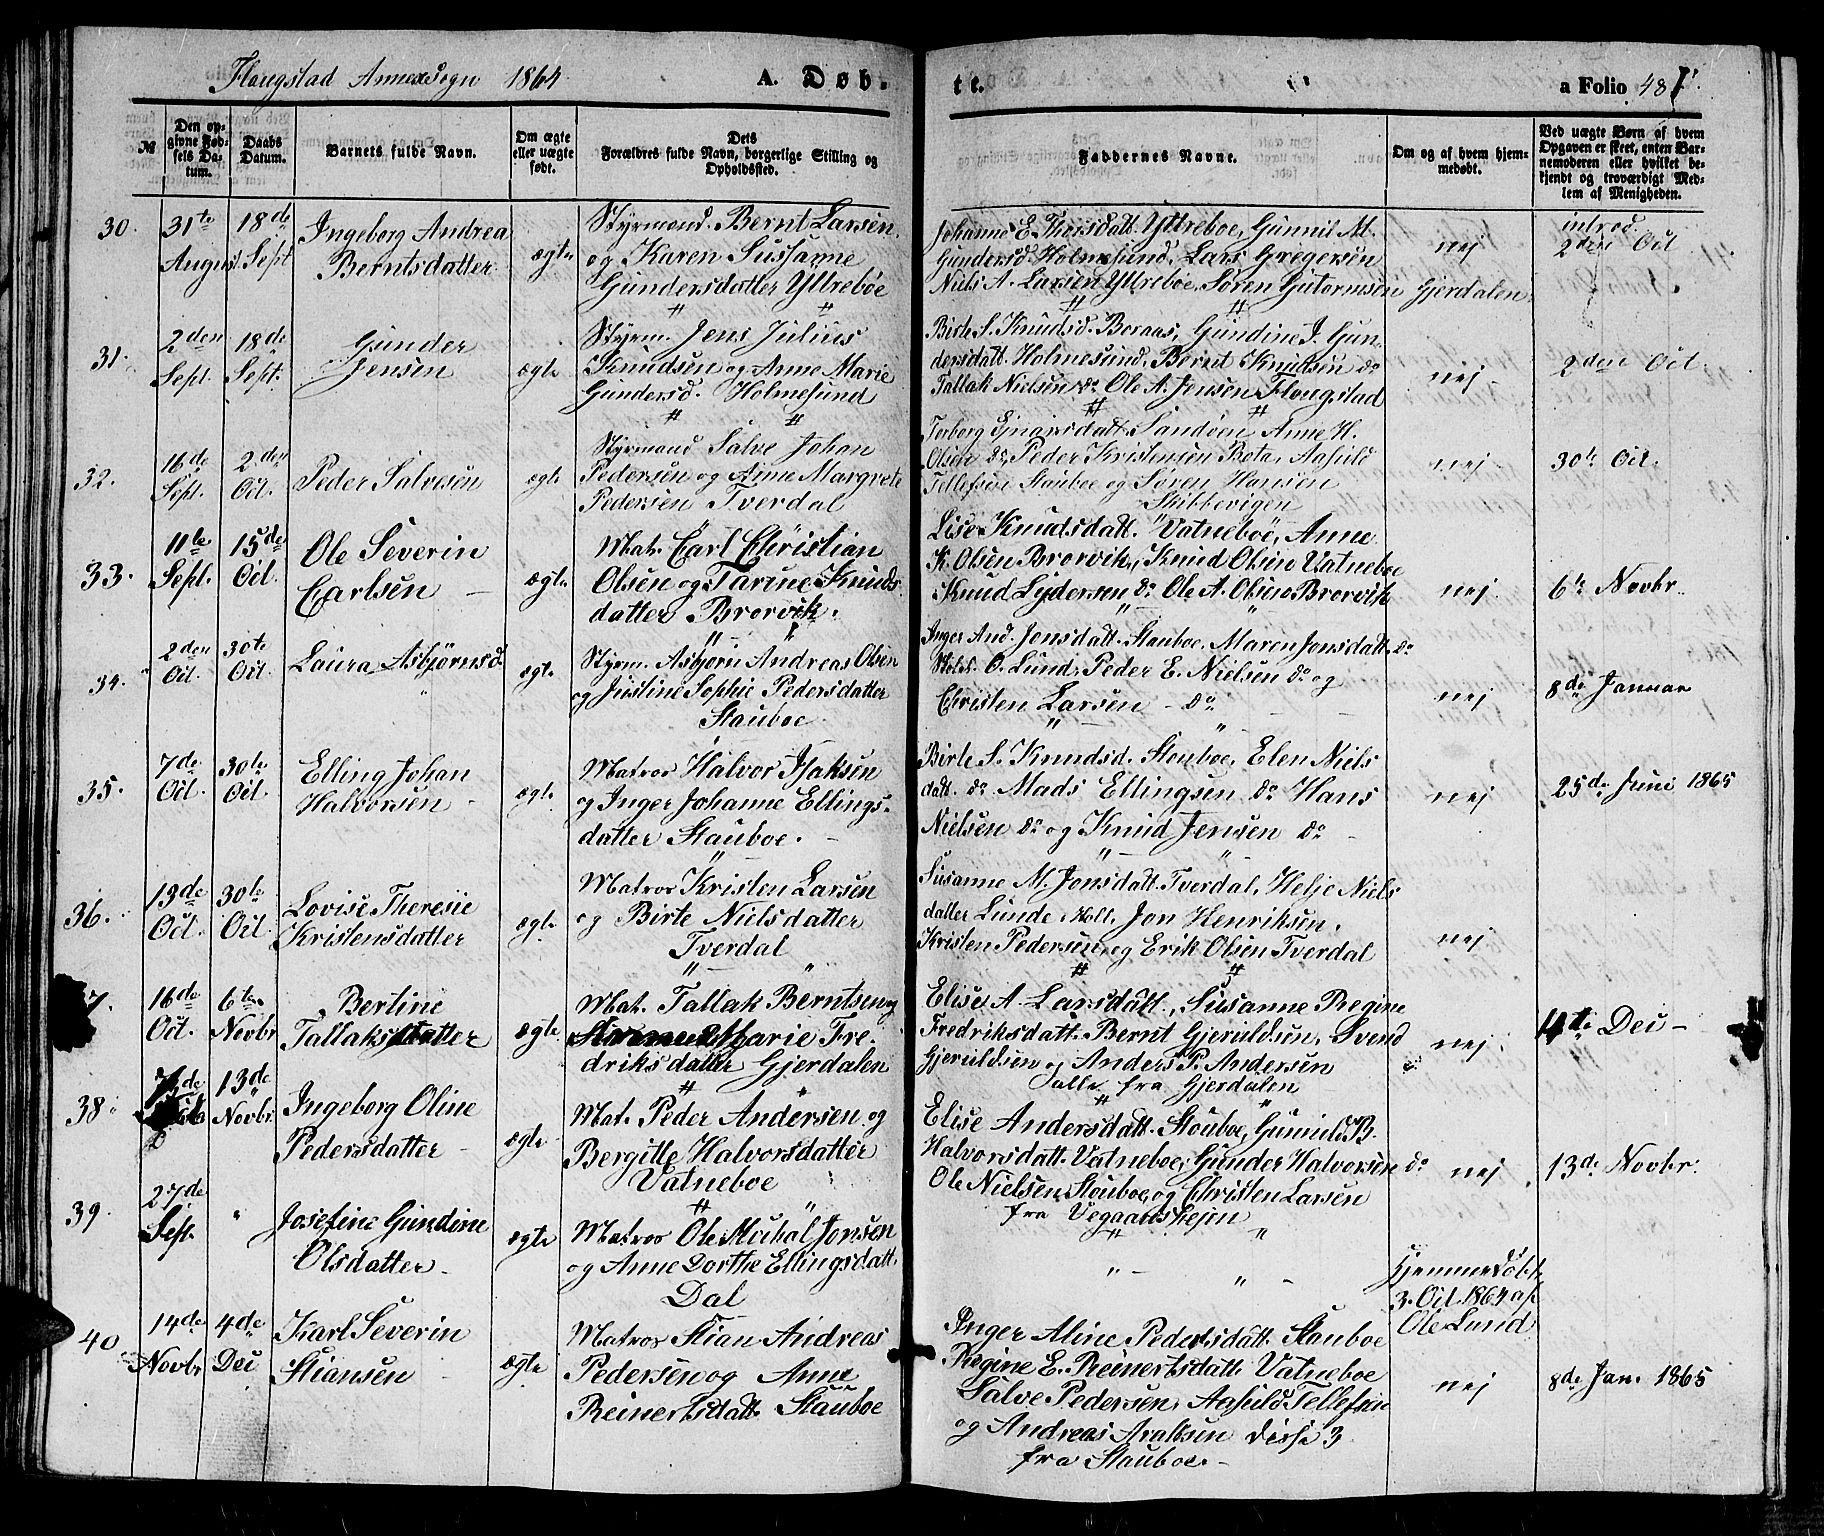 Flougstad Annexsogn 1864 A. Døb-
tt. a Folio 48
№
Den opgivne Fødsels Datum.
Daabs Datum.
Barnets fulde Navn.
Om ægte eller uægte født.
Dets Forældres fulde Navn, borgerlige Stilling og Opholdssted.
Faddernes Navne.
Om og af hvem hjemmedøbt.
Ved uægte Børn af hvem Opgaven er skeet, enten Barnemoderen eller hvilket bekjendt og troværdigt Medlem af Menigheden.
30.
31te August
18de Sept
Ingeborg Andrea
Berntsdatter
ægte
Styrmand. Bernt Larsen
og Karen Sussanne
Gundersdatter Yttrebøe
Johanne E. Thorsdatt Yttreboe, Gunnil M.
Gundersd. Holmesund. Lars Gregersen
Niels A. Larsen Yttreboe, Søren Gutormsen Gjerdalen
nej
introd.
2den Oct
31.
2den Sept.
18de Sept.
Gunder
Jensen
ægte
Styrm. Jens Julius
Knudsen og Anne Marie
Gundersd. Holmesund
Birte S. Knudsd. Boraas, Gundine J. Gun
dersdatt. Holmesund. Bernt Knudsen do
Tallak Nielsen do Ole A. Jensen Flougstad
nej
2den Oct.
32.
16de Sept.
2den Oct.
Peder Salvesen
ægte
Styrmand Salve Johan
Pedersen og Anne Margrete
Pedersen Tverdal
Torborg Ejnarsdatt. Sandøen Anne H.
Olsen do, Peder Kristensen Bota, Aasuld
Tellefsen Stauboe og Søren Hansen
Skibbevigen
nej
30te Oct.
33.
11te Sept.
15de Oct.
Ole Severin
Carlsen
ægte
Mat. Carl Christian
Olsen og Tarine Knuds
datter Brorvik.
Lise Knudsdatt. Vatneboe, Anne
K. Olsen Brorvik, Knud Olsen Vatneboe
Knud Lydersen do Ole A. Olsen Brorvik
nej
6te Novbr.
34.
2den Oct.
30te Oct.
Laura Asbjørnsd
ægte
Styrm. Asbjørn Andreas Olsen
og Justine Sophie Pedersdatter
Stauboe
Inger And. Jonsdatt. Stauboe, Maren Jonsdatt. do
O. Lund, Peder E. Nielsen do og
Christen Larsen do.
nej
8de Januar
35.
7de Oct.
30te Oct.
Elling Johan
Halvorsen
ægte
Matros Halvor Isaksen
og Inger Johanne Ellings-
datter Stauboe.
Birte S. Knudsd. Stouboe, Elen Niels
datt. do Mads Ellingsen do Hans
Nielsen do og Knud Jensen do
nej
25de Juni 1865
36.
13de Oct.
30te Oct.
Lovise Theresie
Kristensdatter
ægte
Matros Kristen Larsen
og Birte Nielsdatter
Tverdal
Susanne M. Jonsdatt. Tverdal, Helje Niels
datter Lunde Holt, Jon Henriksen,
Kristen Pedersen, og Erik Olsen Tverdal
nej
7.
16de Oct.
6te Novbr
Bertine
Tallaksdatter
ægte
Mat. Tallak Berntsen og
Marie Fre-
driksdatter Gjerdalen
Elise A. Larsdatt., Susanne Regine
Fredriksdatt. Bernt Gjeruldsen, Svend
Gjeruldsen og Anders P. Andersen
alle fra Gjerdalen
nej
11te Dec
38
13de Novbr.
Ingeborg Oline
Pedersdatter
ægte
Mat. Peder Andersen og
Bergitte Halvorsdatter
Vatneboe
Elise Andersdatt. Stouboe, Gunild B.
Halvorsdatt. Vatneboe, Gunder Halvorsen do
Ole Nielsen Stouboe, og Christen Larsen
fra Vegaarskejen
nej
13de Novbr.
39.
27de Sept.
"
Josefine Gundine
Olsdatter
ægte
Matros Ole Michal Jensen
og Anne Dorthe Ellingsdatt.
Dal
" "
Hjemmedøbt
3. Oct. 1864 af
Ole Lund
40
14de Novbr
4de Dec
Karl Severin
Stiansen
ægte
Matros Stian Andreas
Pedersen og Anne
Reinertsdatt. Stauboe
Inger Aline Pedersdatt. Stauboe
Regine E. Reinertsdatt. Vatneboe
Salve Pedersen, Aasuld Tellefsen
og Andreas Araltsen disse 3
fra Stauboe.
nej
8de Jan. 1865